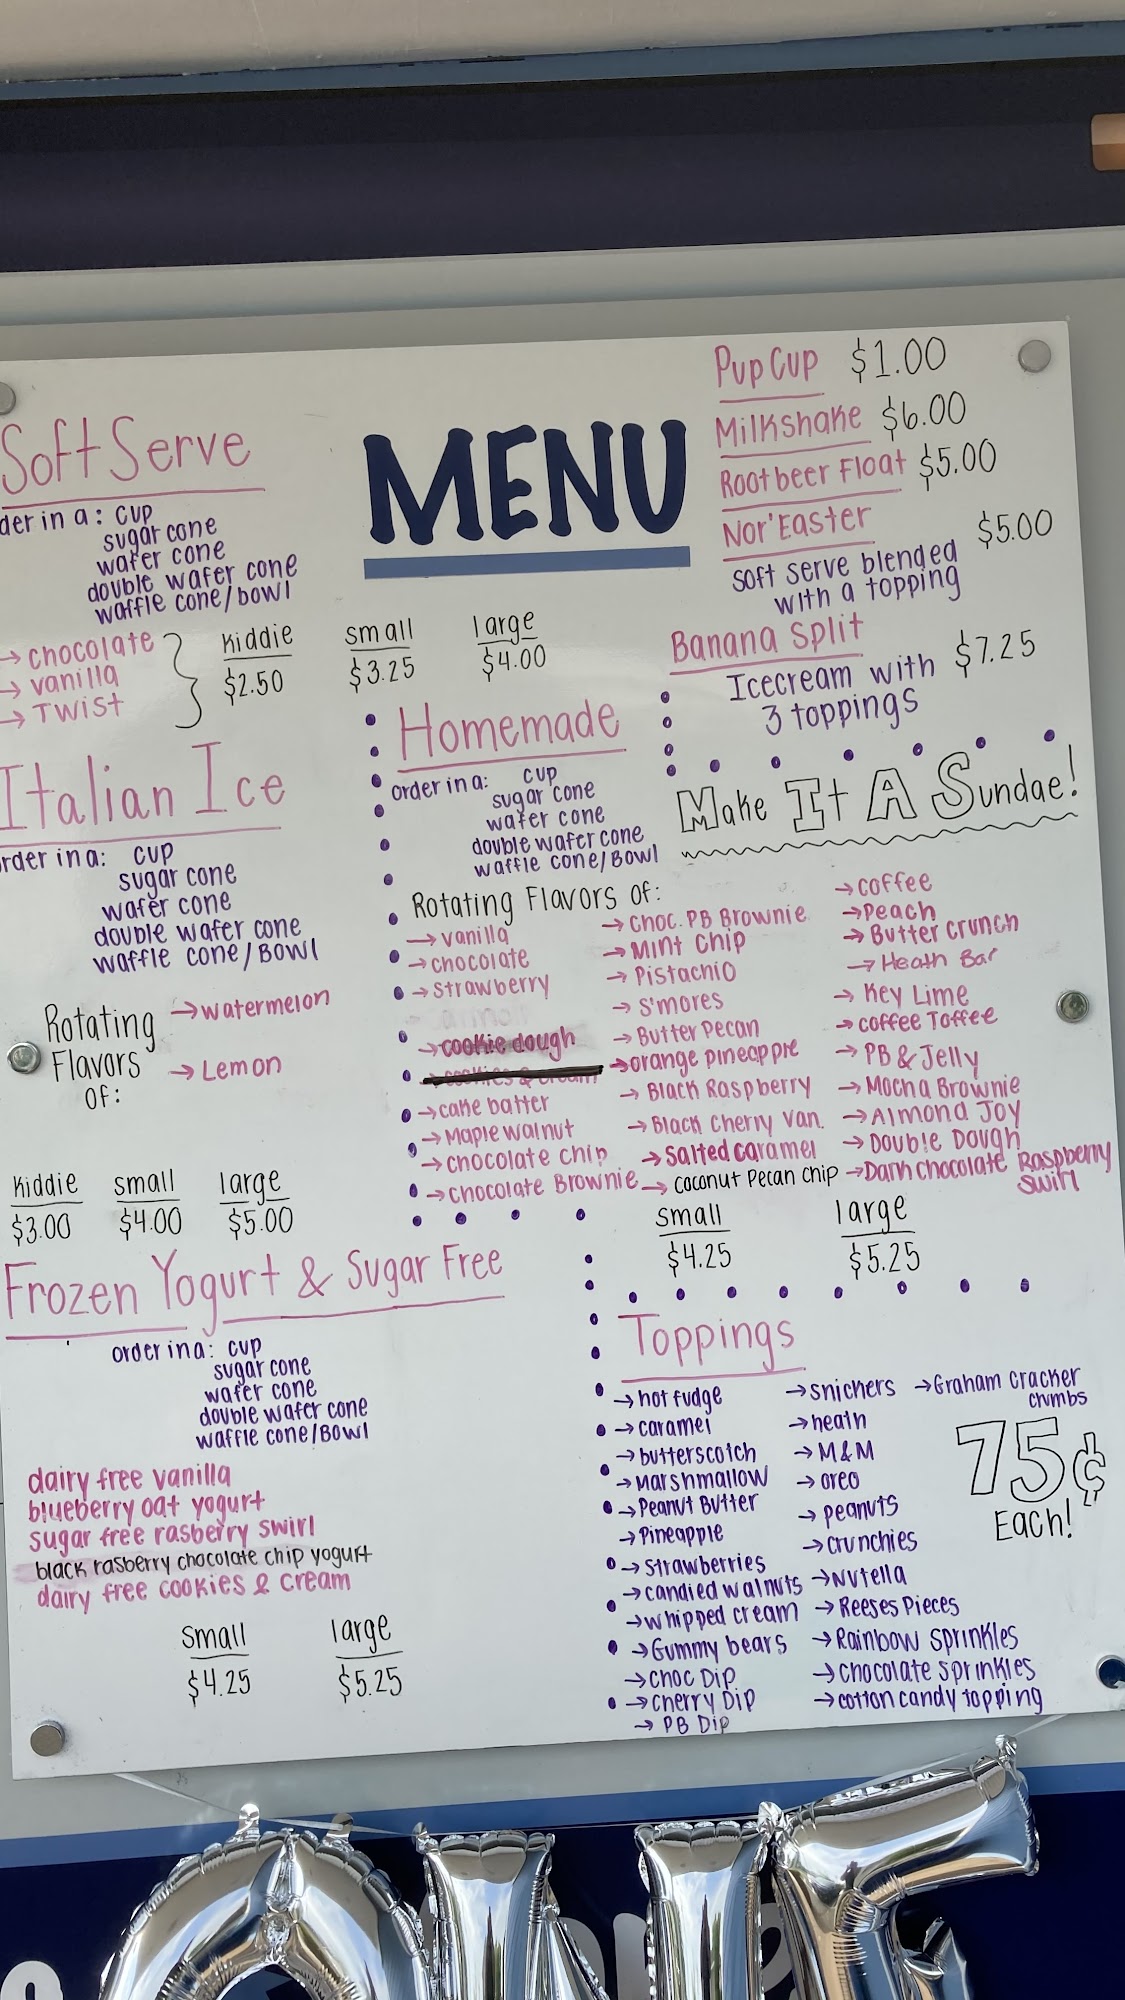 MENU
Soft Serve
der in a: cup
sugar cone
wafer cone
double wafer cone
waffle cone/bowl
→ chocolate
→ vanilla
→ Twist
Kiddie small large
$2.50 $3.25 $4.00
Pup Cup $1.00
Milkshake $6.00
Rootbeer Float $5.00
Nor'Easter $5.00
soft serve blended
with a topping
Banana Split $7.25
Icecream with
3 toppings
Make It A Sundae!
Italian Ice
rder in a: cup
sugar cone
wafer cone
double wafer cone
waffle cone/Bowl
Rotating
Flavors
of:
→ watermelon
→ Lemon
Kiddie small large
$3.00 $4.00 $5.00
Homemade
order in a: cup
sugar cone
wafer cone
double wafer cone
waffle cone/Bowl
Rotating Flavors of:
→ vanilla
→ chocolate
→ strawberry
→ cookie dough
→ cookies & cream
→ cake batter
→ Maple walnut
→ chocolate chip
→ chocolate Brownie
→ Choc. PB Brownie
→ Mint Chip
→ Pistachio
→ S'mores
→ Butter Pecan
→ orange pineapple
→ Black Raspberry
→ Black Cherry Van.
→ Salted caramel
→ coconut Pecan chip
→ coffee
→ Peach
→ Butter Crunch
→ Heath Bar
→ Key Lime
→ coffee Toffee
→ PB & Jelly
→ Mocha Brownie
→ Almond Joy
→ Double Dough
→ Dark chocolate Raspberry
swirl
small large
$4.25 $5.25
Frozen Yogurt & Sugar Free
order in a: cup
sugar cone
wafer cone
double wafer cone
waffle cone/Bowl
dairy free vanilla
blueberry oat yogurt
sugar free rasberry swirl
black rasberry chocolate chip yogurt
dairy free cookies & cream
small large
$4.25 $5.25
Toppings
→ hot fudge
→ caramel
→ butterscotch
→ Marshmallow
→ Peanut Butter
→ Pineapple
→ strawberries
→ candied walnuts
→ whipped cream
→ Gummy bears
→ Choc Dip
→ cherry Dip
→ PB Dip
→ snickers
→ heath
→ M&M
→ oreo
→ peanuts
→ crunchies
→ Nutella
→ Reeses Pieces
→ Rainbow Sprinkles
→ chocolate sprinkles
→ cotton candy topping
→ Graham Cracker
crumbs
75¢
Each!